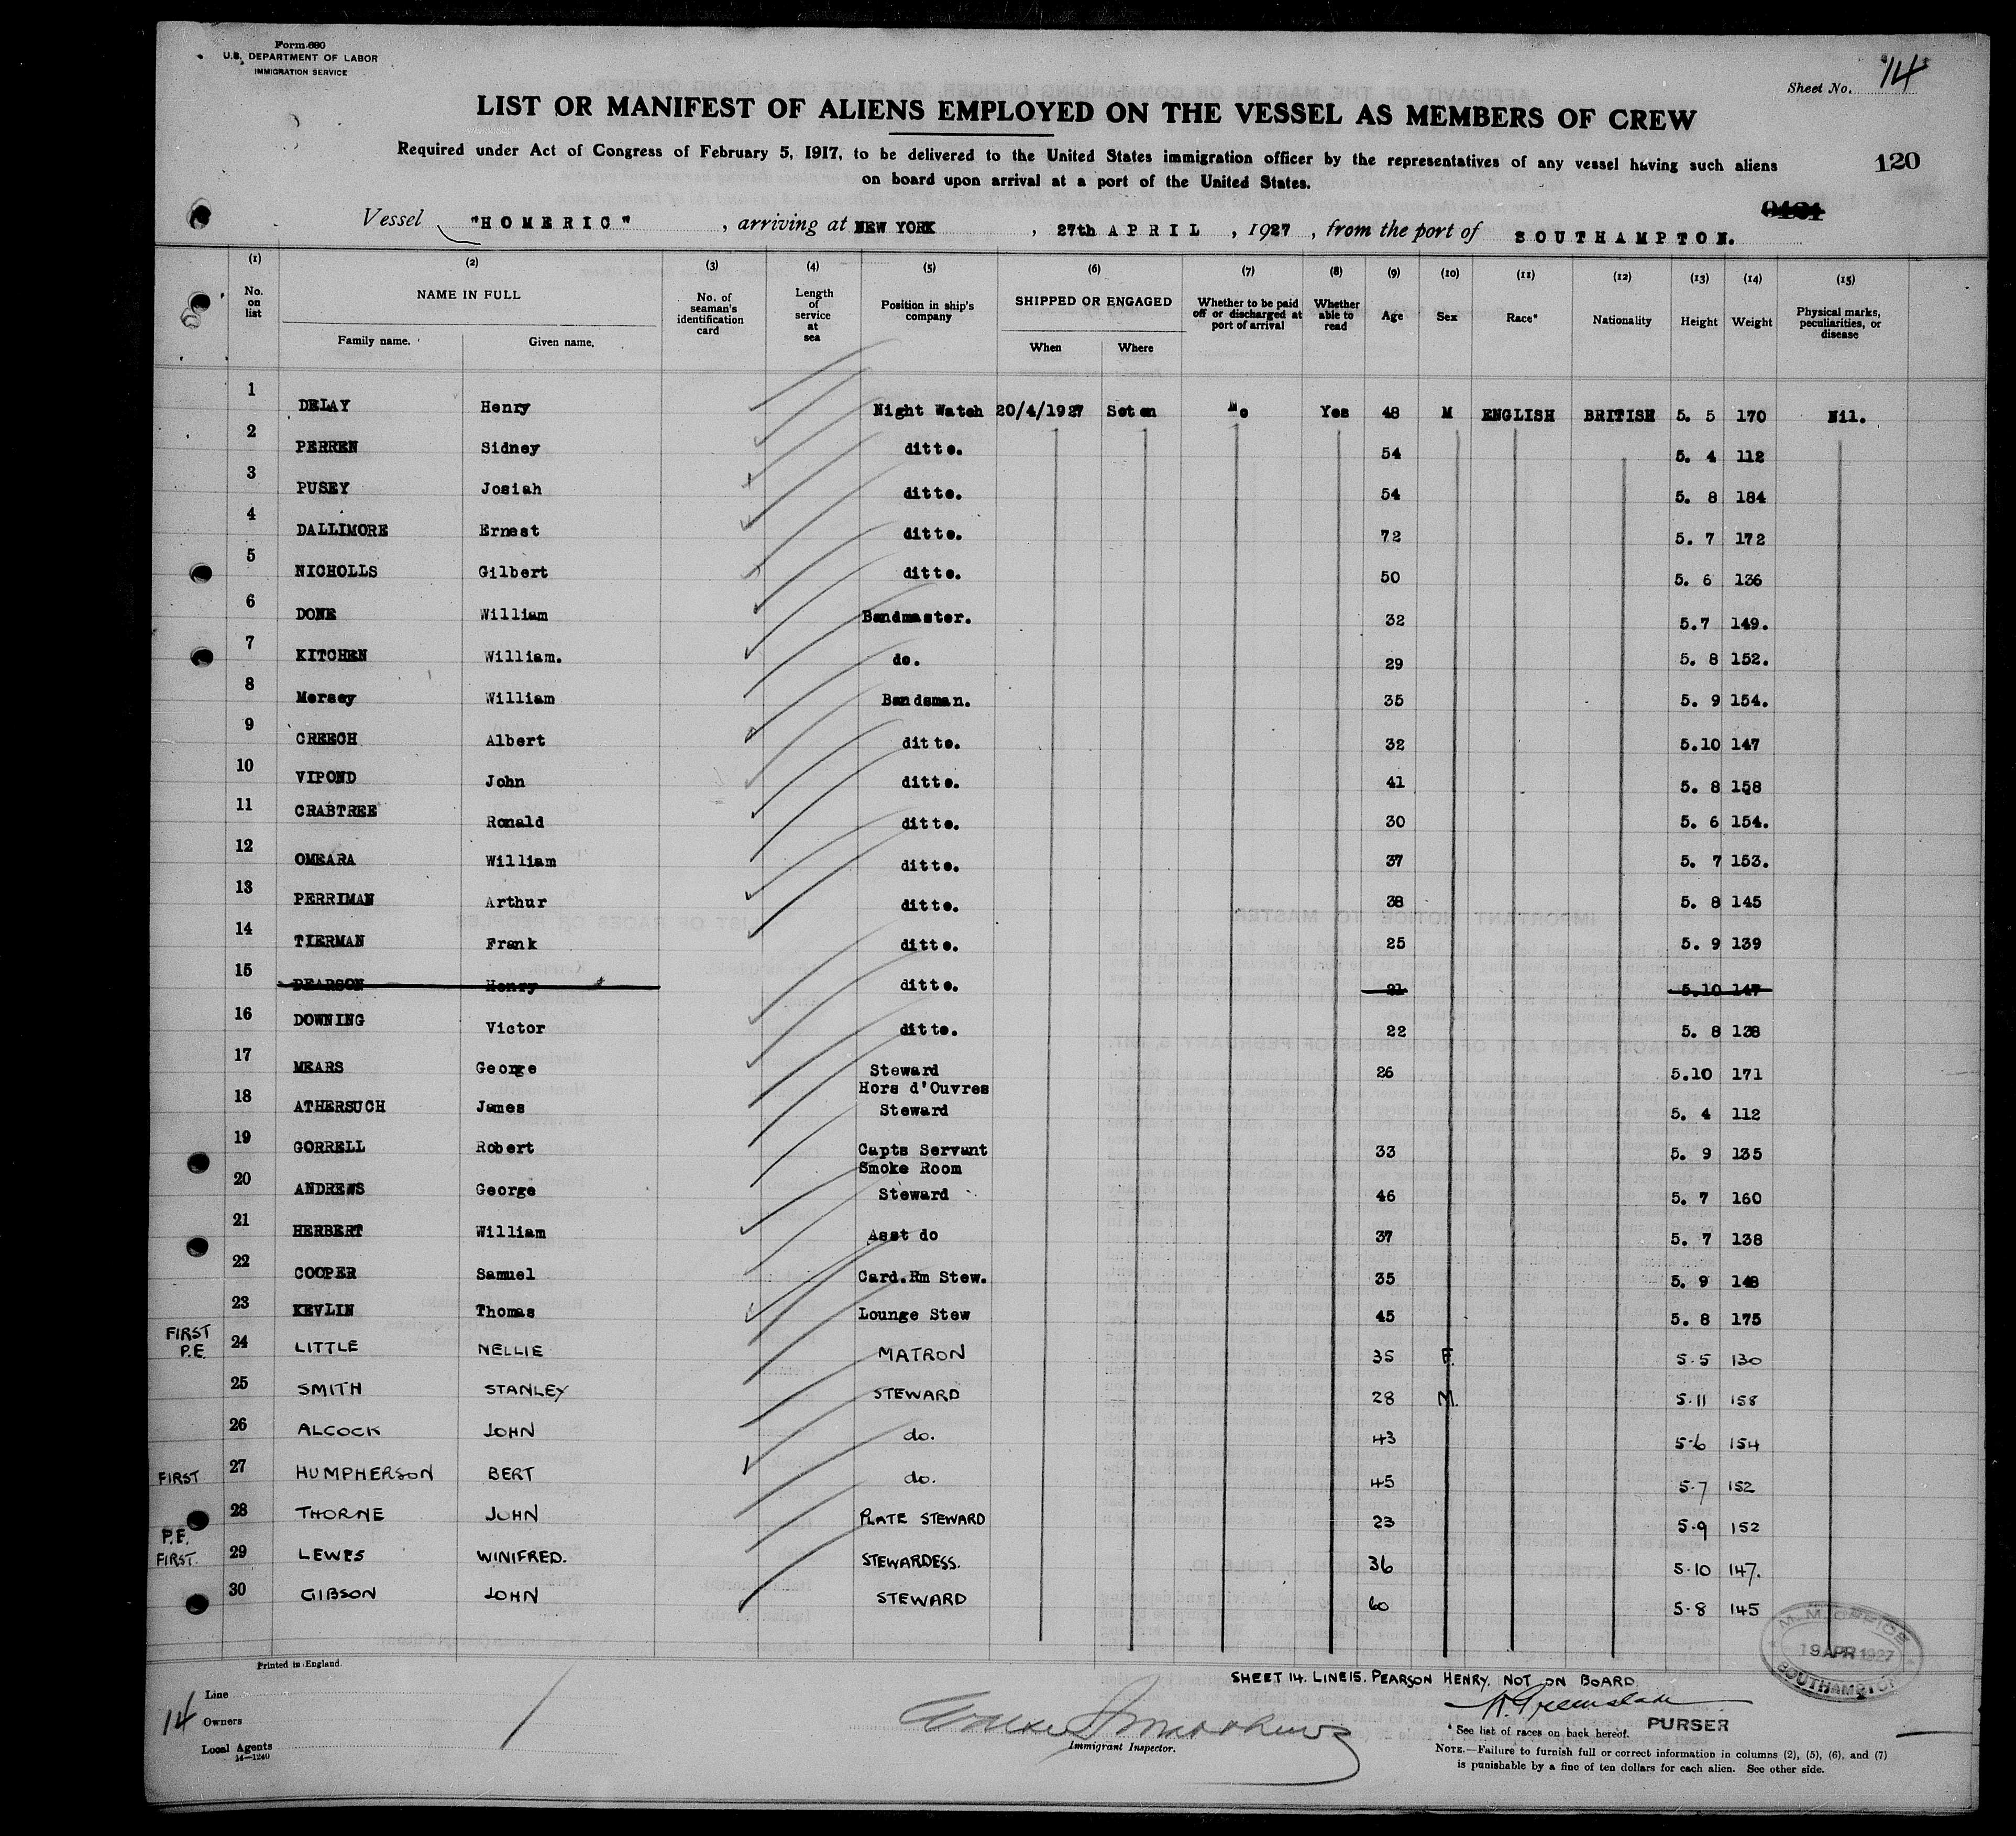 Form 680
U.S. DEPARTMENT OF LABOR
IMMIGRATION SERVICE
Sheet No. 14
LIST OR MANIFEST OF ALIENS EMPLOYED ON THE VESSEL AS MEMBERS OF CREW
Required under Act of Congress of February 5, 1917, to be delivered to the United States immigration officer by the representatives of any vessel having such aliens
on board upon arrival at a port of the United States.
120
Vessel "HOMERIC", arriving at NEW YORK, 27th APRIL, 1927, from the port of SOUTHAMPTON.
(1) (2) (3) (4) (5) (6) (7) (8) (9) (10) (11) (12) (13) (14) (15)
No. on list NAME IN FULL Family name. Given name. No. of seaman's identification card Length of service at sea Position in ship's company SHIPPED OR ENGAGED When Where Whether to be paid off or discharged at port of arrival Whether able to read Age Sex Race* Nationality Height Weight Physical marks, peculiarities, or disease
1 DELAY Henry Night Watch 20/4/1927 Soton No Yes 48 M ENGLISH BRITISH 5. 5 170 Nil.
2 PERREN Sidney ditto. 54 5. 4 112
3 PUSEY Josiah ditto. 54 5. 8 184
4 DALLIMORE Ernest ditto. 72 5. 7 172
5 NICHOLLS Gilbert ditto. 50 5. 6 136
6 DONE William Bandmaster. 32 5.7 149.
7 KITCHEN William. do. 29 5. 8 152.
8 Mersey William Bandsman. 35 5. 9 154.
9 CREECH Albert ditto. 32 5.10 147
10 VIPOND John ditto. 41 5. 8 158
11 CRABTREE Ronald ditto. 30 5. 6 154.
12 OMEARA William ditto. 37 5. 7 153.
13 PERRIMAN Arthur ditto. 38 5. 8 145
14 TIERMAN Frank ditto. 25 5. 9 139
15 PEARSON Henry ditto. 21 5.10 147
16 DOWNING Victor ditto. 22 5. 8 138
17 MEARS George Steward 26 5.10 171
18 ATHERSUCH James Hors d'Ouvres Steward 5. 4 112
19 GORRELL Robert Capts Servant 33 5. 9 135
20 ANDREWS George Smoke Room Steward 46 5. 7 160
21 HERBERT William Asst do 37 5. 7 138
22 COOPER Samuel Card.Rm Stew. 35 5. 9 148
23 KEVLIN Thomas Lounge Stew 45 5. 8 175
FIRST P.E. 24 LITTLE NELLIE MATRON 35 F. 5.5 130
25 SMITH STANLEY STEWARD 28 M. 5.11 158
26 ALCOCK JOHN do. 43 5.6 154
FIRST 27 HUMPHERSON BERT do. 45 5.7 152
28 THORNE JOHN PLATE STEWARD 23 5.9 152
P.E. FIRST. 29 LEWES WINIFRED. STEWARDESS. 36 5.10 147.
30 GIBSON JOHN STEWARD 60 5.8 145
M.M. OFFICE
19 APR 1927
SOUTHAMPTON
Printed in England.
SHEET 14. LINE 15. PEARSON HENRY. NOT ON BOARD
14
Line
Owners
Local Agents
14—1240
Immigrant Inspector.
PURSER
* See list of races on back hereof.
NOTE.—Failure to furnish full or correct information in columns (2), (5), (6), and (7)
is punishable by a fine of ten dollars for each alien. See other side.